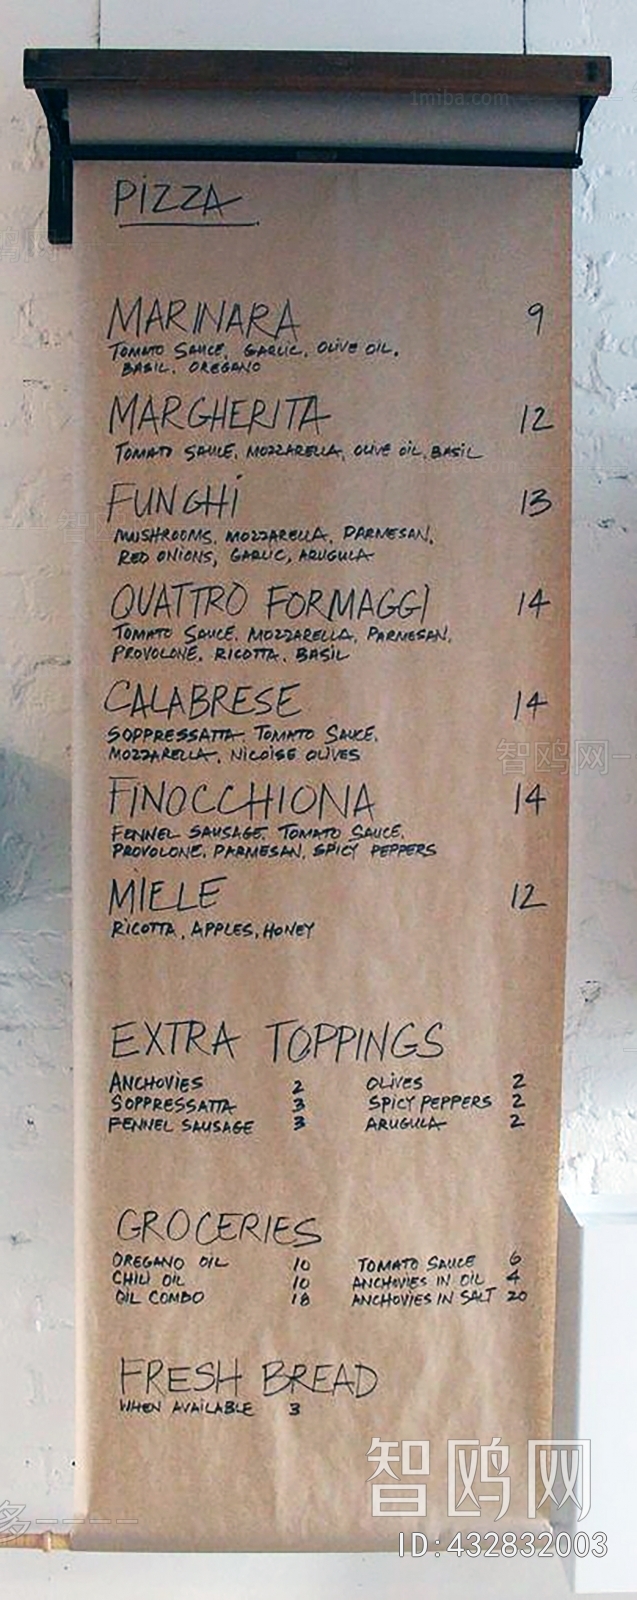 1miba.com
PIZZA
MARINARA 9
TOMATO SAUCE, GARLIC, OLIVE OIL,
BASIL, OREGANO
MARGHERITA 12
TOMATO SAUCE, MOZZARELLA, OLIVE OIL, BASIL
FUNGHI 13
MUSHROOMS, MOZZARELLA, PARMESAN,
RED ONIONS, GARLIC, ARUGULA
QUATTRO FORMAGGI 14
TOMATO SAUCE, MOZZARELLA, PARMESAN,
PROVOLONE, RICOTTA, BASIL
CALABRESE 14
SOPPRESSATTA, TOMATO SAUCE,
MOZZARELLA, NICOISE OLIVES
智鸥网
FINOCCHIONA 14
FENNEL SAUSAGE, TOMATO SAUCE,
PROVOLONE, PARMESAN, SPICY PEPPERS
MIELE 12
RICOTTA, APPLES, HONEY
EXTRA TOPPINGS
ANCHOVIES 2 OLIVES 2
SOPPRESSATTA 3 SPICY PEPPERS 2
FENNEL SAUSAGE 3 ARUGULA 2
GROCERIES
OREGANO OIL 10 TOMATO SAUCE 6
CHILI OIL 10 ANCHOVIES IN OIL 4
OIL COMBO 18 ANCHOVIES IN SALT 20
FRESH BREAD
WHEN AVAILABLE 3
智鸥网
ID:432832003